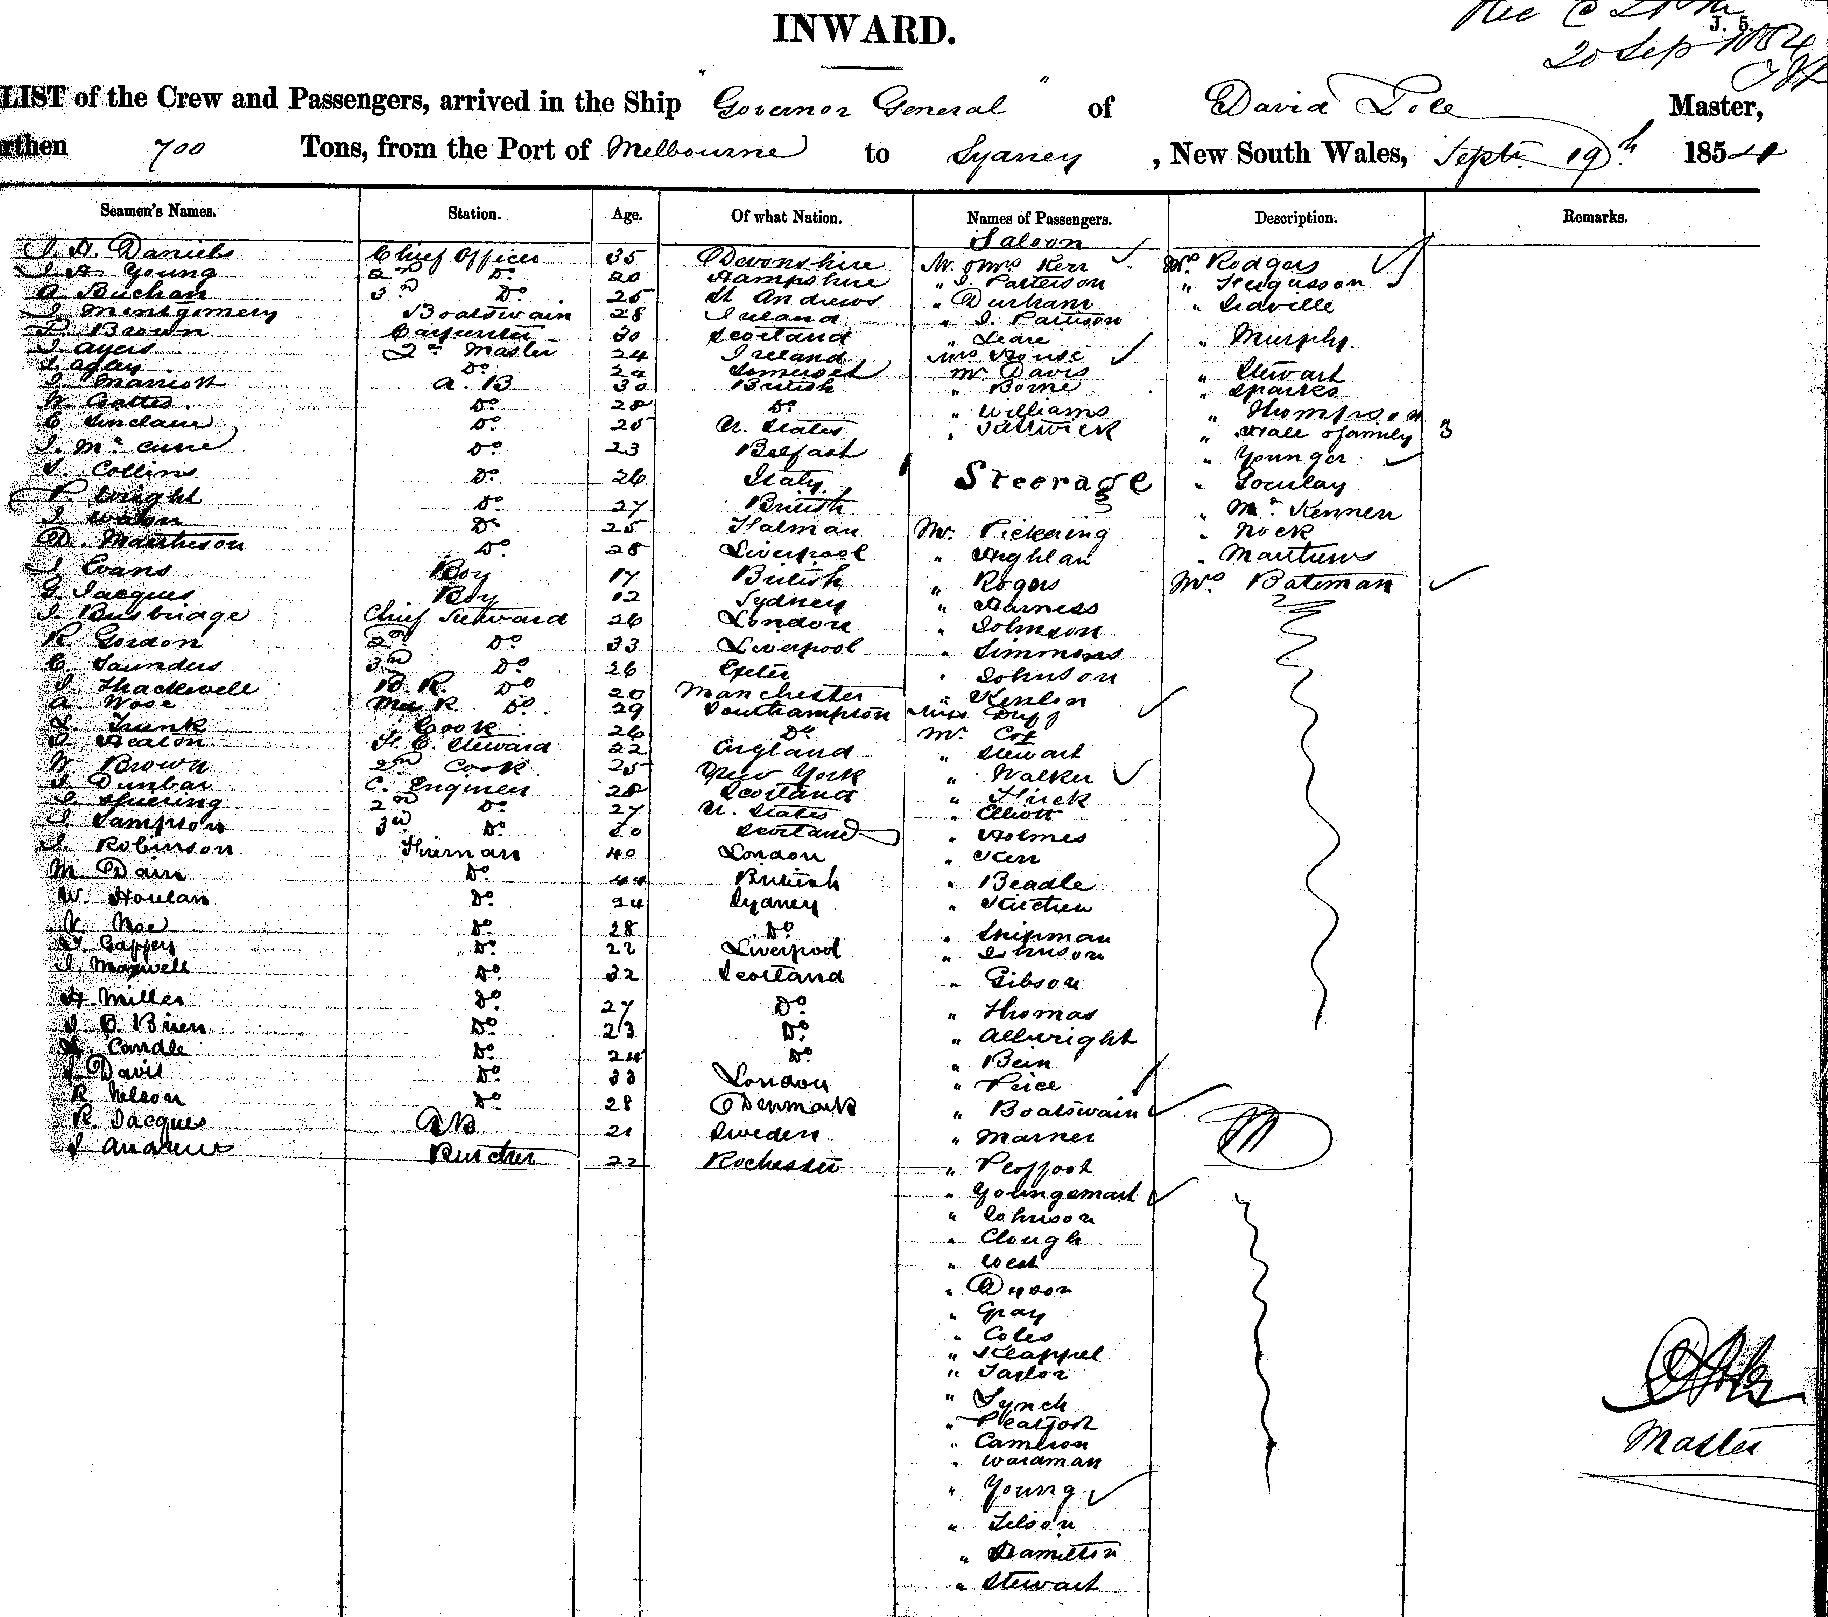 INWARD.
J. 5.
20 Sep 1854
LIST of the Crew and Passengers, arrived in the Ship "Governor General" of David Master,
rthen 700 Tons, from the Port of Melbourne to Sydney, New South Wales, Septr 19th 1854
Seamen's Names. Station. Age. Of what Nation. Names of Passengers. Description. Remarks.
Saloon
Daniels Chief Officer 35 Devonshire Mr & Mrs Kerr Mr Rodgers
Young 2nd Do 20 Hampshire " J. Patterson " Fergusson
A Buchan 3rd Do 25 St Andrews " Durham " Lidville
J Montgomery Boatswain 28 Ireland " J. Pattison
Brown Carpenter 30 Scotland " Leare " Murphy
J Ayers Qr Master 24 Ireland Mrs House
Do Somerset Mr Davis " Stewart
J Marriott A. B 30 British " Borne " Sparkes
Do 28 Do " Williams " Thompson
C Sinclair Do 25 U. States " " Hale & family 3
J. Mc Cune Do 23 Belfast " Younger
J. Collins Do 26 Italy Steerage "
P. Wright Do 27 British " Mc Kennen
J Do 25 Mr. Pickering " Nock
D. Mathieson Do 28 Liverpool " " Matthews
J Evans Boy 17 British " Rogers Mrs Bateman
G Jacques Boy 12 Sydney " Harness
J Busbridge Chief Steward 26 London " Johnson
R Gordon 2nd Do 33 Liverpool " Simmons
C Saunders 3rd Do 26 Exeter " Johnson
J Thackwell B. R. Do 20 Manchester " Kenlon
A Wose Do 29 Southampton Miss Duff
J. Trunk Cook 26 Do Mr Cox
J Heaton Steward 22 England " Stewart
W Brown 2nd Cook 25 New York " Walker
J Dunbar C. Engineer 28 Scotland "
2nd Do 27 U. States " Elliott
J Sampson 3rd Do Scotland " Holmes
J Robinson Fireman 40 London " Kerr
M Dain Do 44 British " Beadle
W. Houlan Do 24 Sydney "
Do 28 Do " Shipman
Gaffey Do 22 Liverpool " Johnson
J. Maxwell Do 32 Scotland " Gibson
H Miller Do 27 Do " Thomas
J O Brien Do 23 Do " Allwright
Candle Do 24 Do " Bein
J Davis Do 33 London " Price
R Nelson Do 28 Denmark " Boatswain
R. Jacques AB 21 Sweden " Marner
J Andrews Butcher 22 Rochester "
" Youngsmart
" Johnson
" Clough
" West
" Dyson
" Gray
" Coles
" Klappel
" Taylor
" Lynch
"
" Cameron
" Wardman
" Young
"
" Hamilton
" Stewart
Master